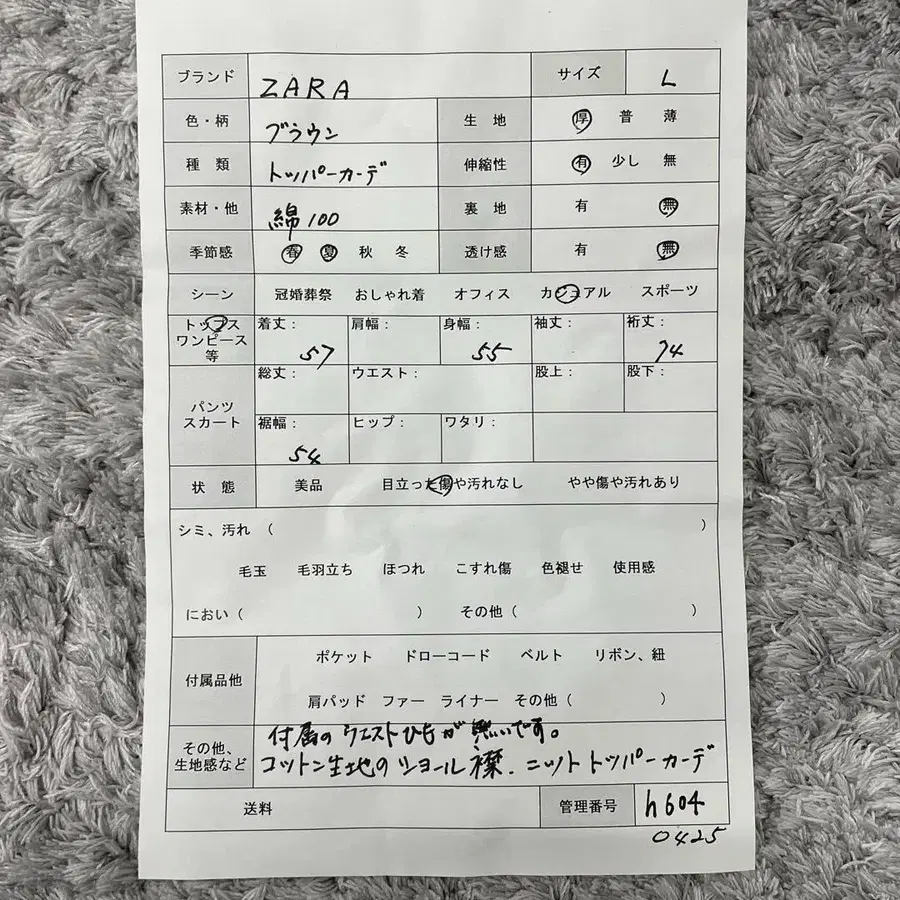 ブランド ZARA サイズ L
色・柄 ブラウン 生地 厚 普 薄
種類 トッパーカーデ 伸縮性 有 少し 無
素材・他 綿100 裏地 有 無
季節感 春 夏 秋 冬 透け感 有 無
シーン 冠婚葬祭 おしゃれ着 オフィス カジュアル スポーツ
トップス
ワンピース
等
着丈: 57 肩幅: 身幅: 55 袖丈: 裄丈: 74
パンツ
スカート
総丈: ウエスト: 股上: 股下:
裾幅: 54 ヒップ: ワタリ:
状態 美品 目立った傷や汚れなし やや傷や汚れあり
シミ、汚れ ( )
毛玉 毛羽立ち ほつれ こすれ傷 色褪せ 使用感
におい( ) その他( )
付属品他
ポケット ドローコード ベルト リボン、紐
肩パッド ファー ライナー その他( )
その他、
生地感など
付属のウエストひもが無いです。
コットン生地のショール襟、ニットトッパーカーデ
送料 管理番号 h604
0425